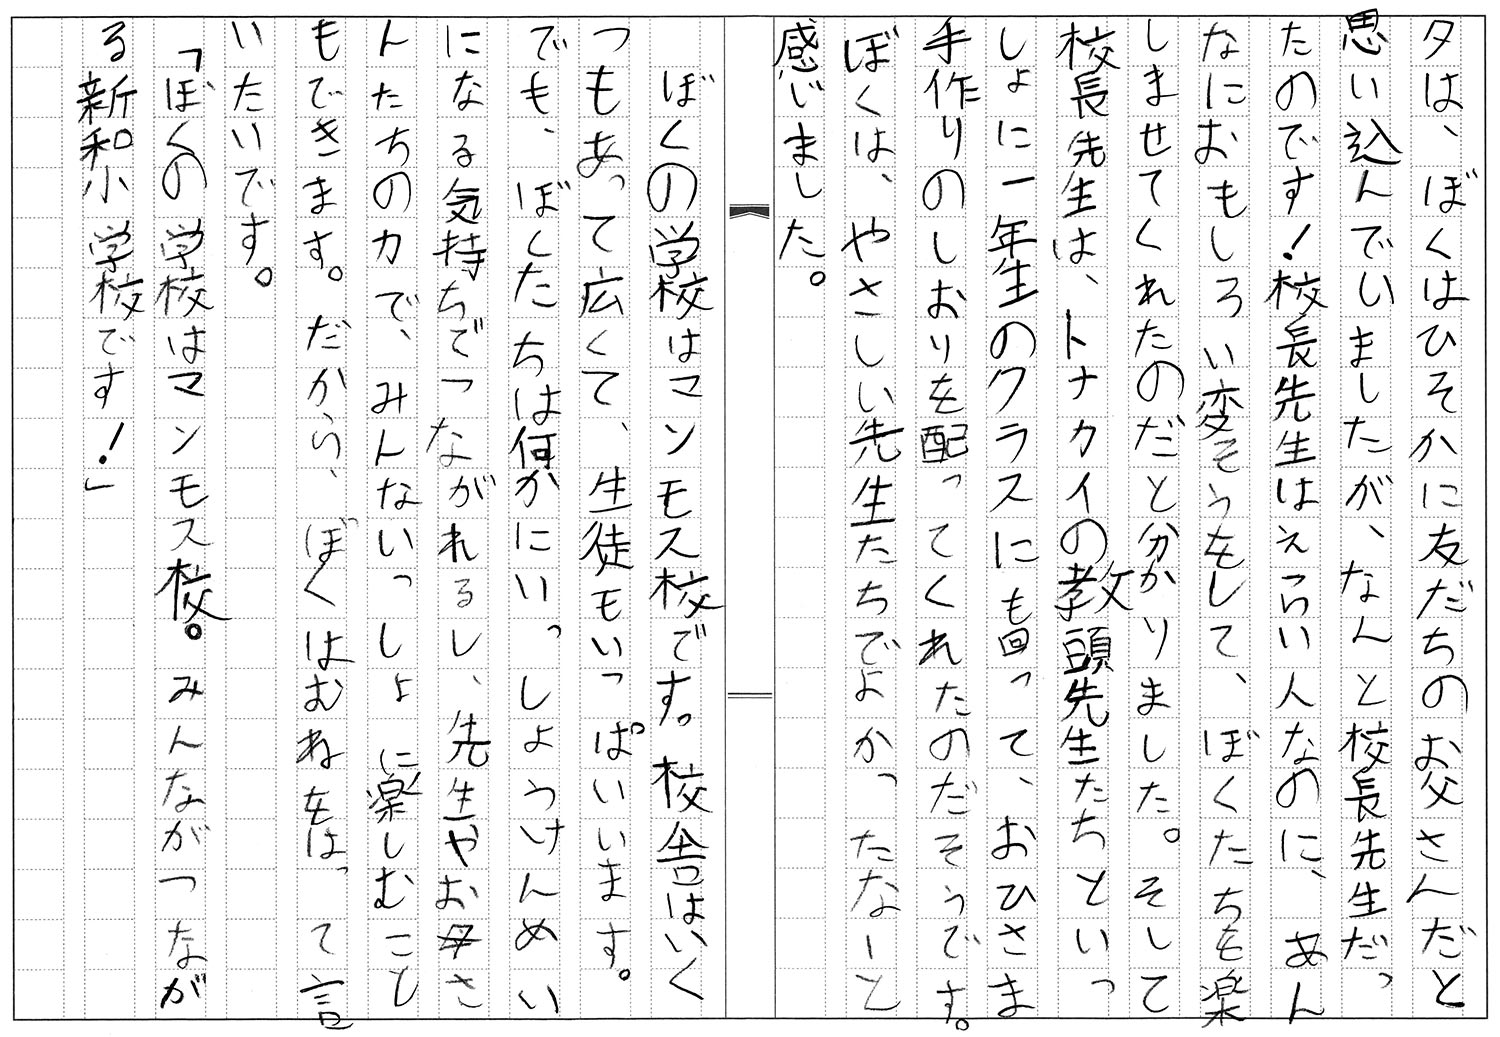 タは、ぼくはひそかに友だちのお父さんだと
思い込んでいましたが、なんと校長先生だっ
たのです！校長先生はえらい人なのに、あん
なにおもしろい変そうをして、ぼくたちを楽
しませてくれたのだと分かりました。そして
校長先生は、トナカイの教頭先生たちといっ
しょに一年生のクラスにも回って、おひさま
手作りのしおりを配ってくれたのだそうです。
ぼくは、やさしい先生たちでよかったなーと
感じました。
ぼくの学校はマンモス校です。校舎はいく
つもあって広くて、生徒もいっぱいいます。
でも、ぼくたちは何かにいっしょうけんめい
になる気持ちでつながれるし、先生やお母さ
んたちの力で、みんないっしょに楽しむこと
もできます。だから、ぼくはむねをはって言
いたいです。
「ぼくの学校はマンモス校。みんながつなが
る新和小学校です！」